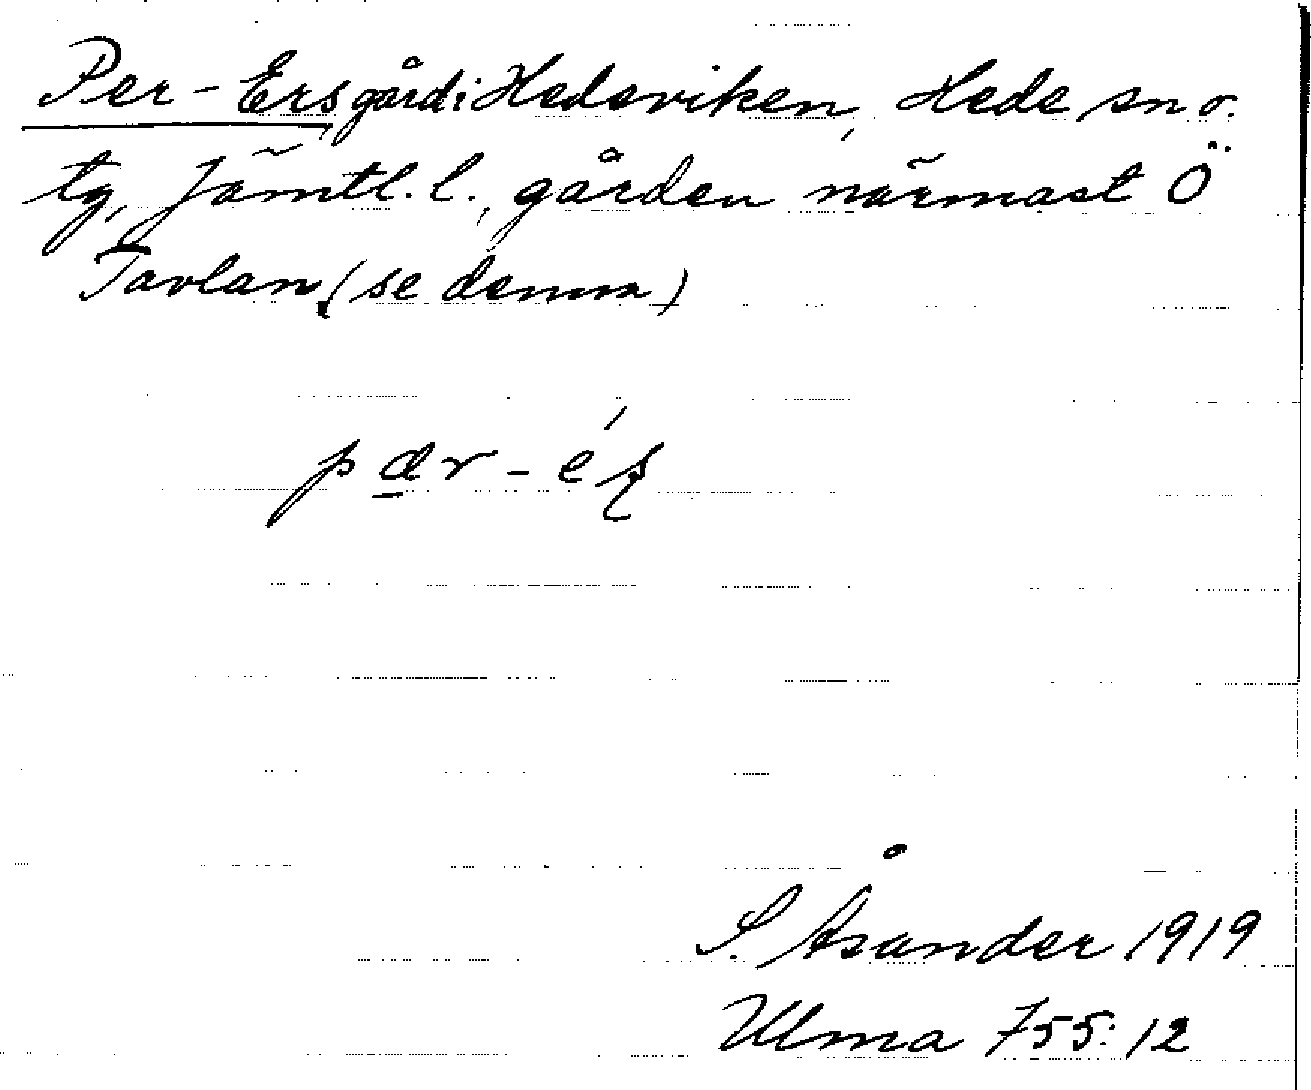 Per-Ers gård i Hedeviken, Hede sn o.
tg, Jämtl. l., gården närmast Ö
Tavlan (se denna)
pær-éʂ
S. Åsander 1919
Ulma 755:12